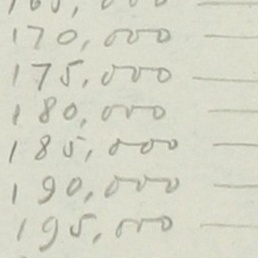 165,000 —
170,000 —
175,000 —
180,000 —
185,000 —
190,000 —
195,000 —